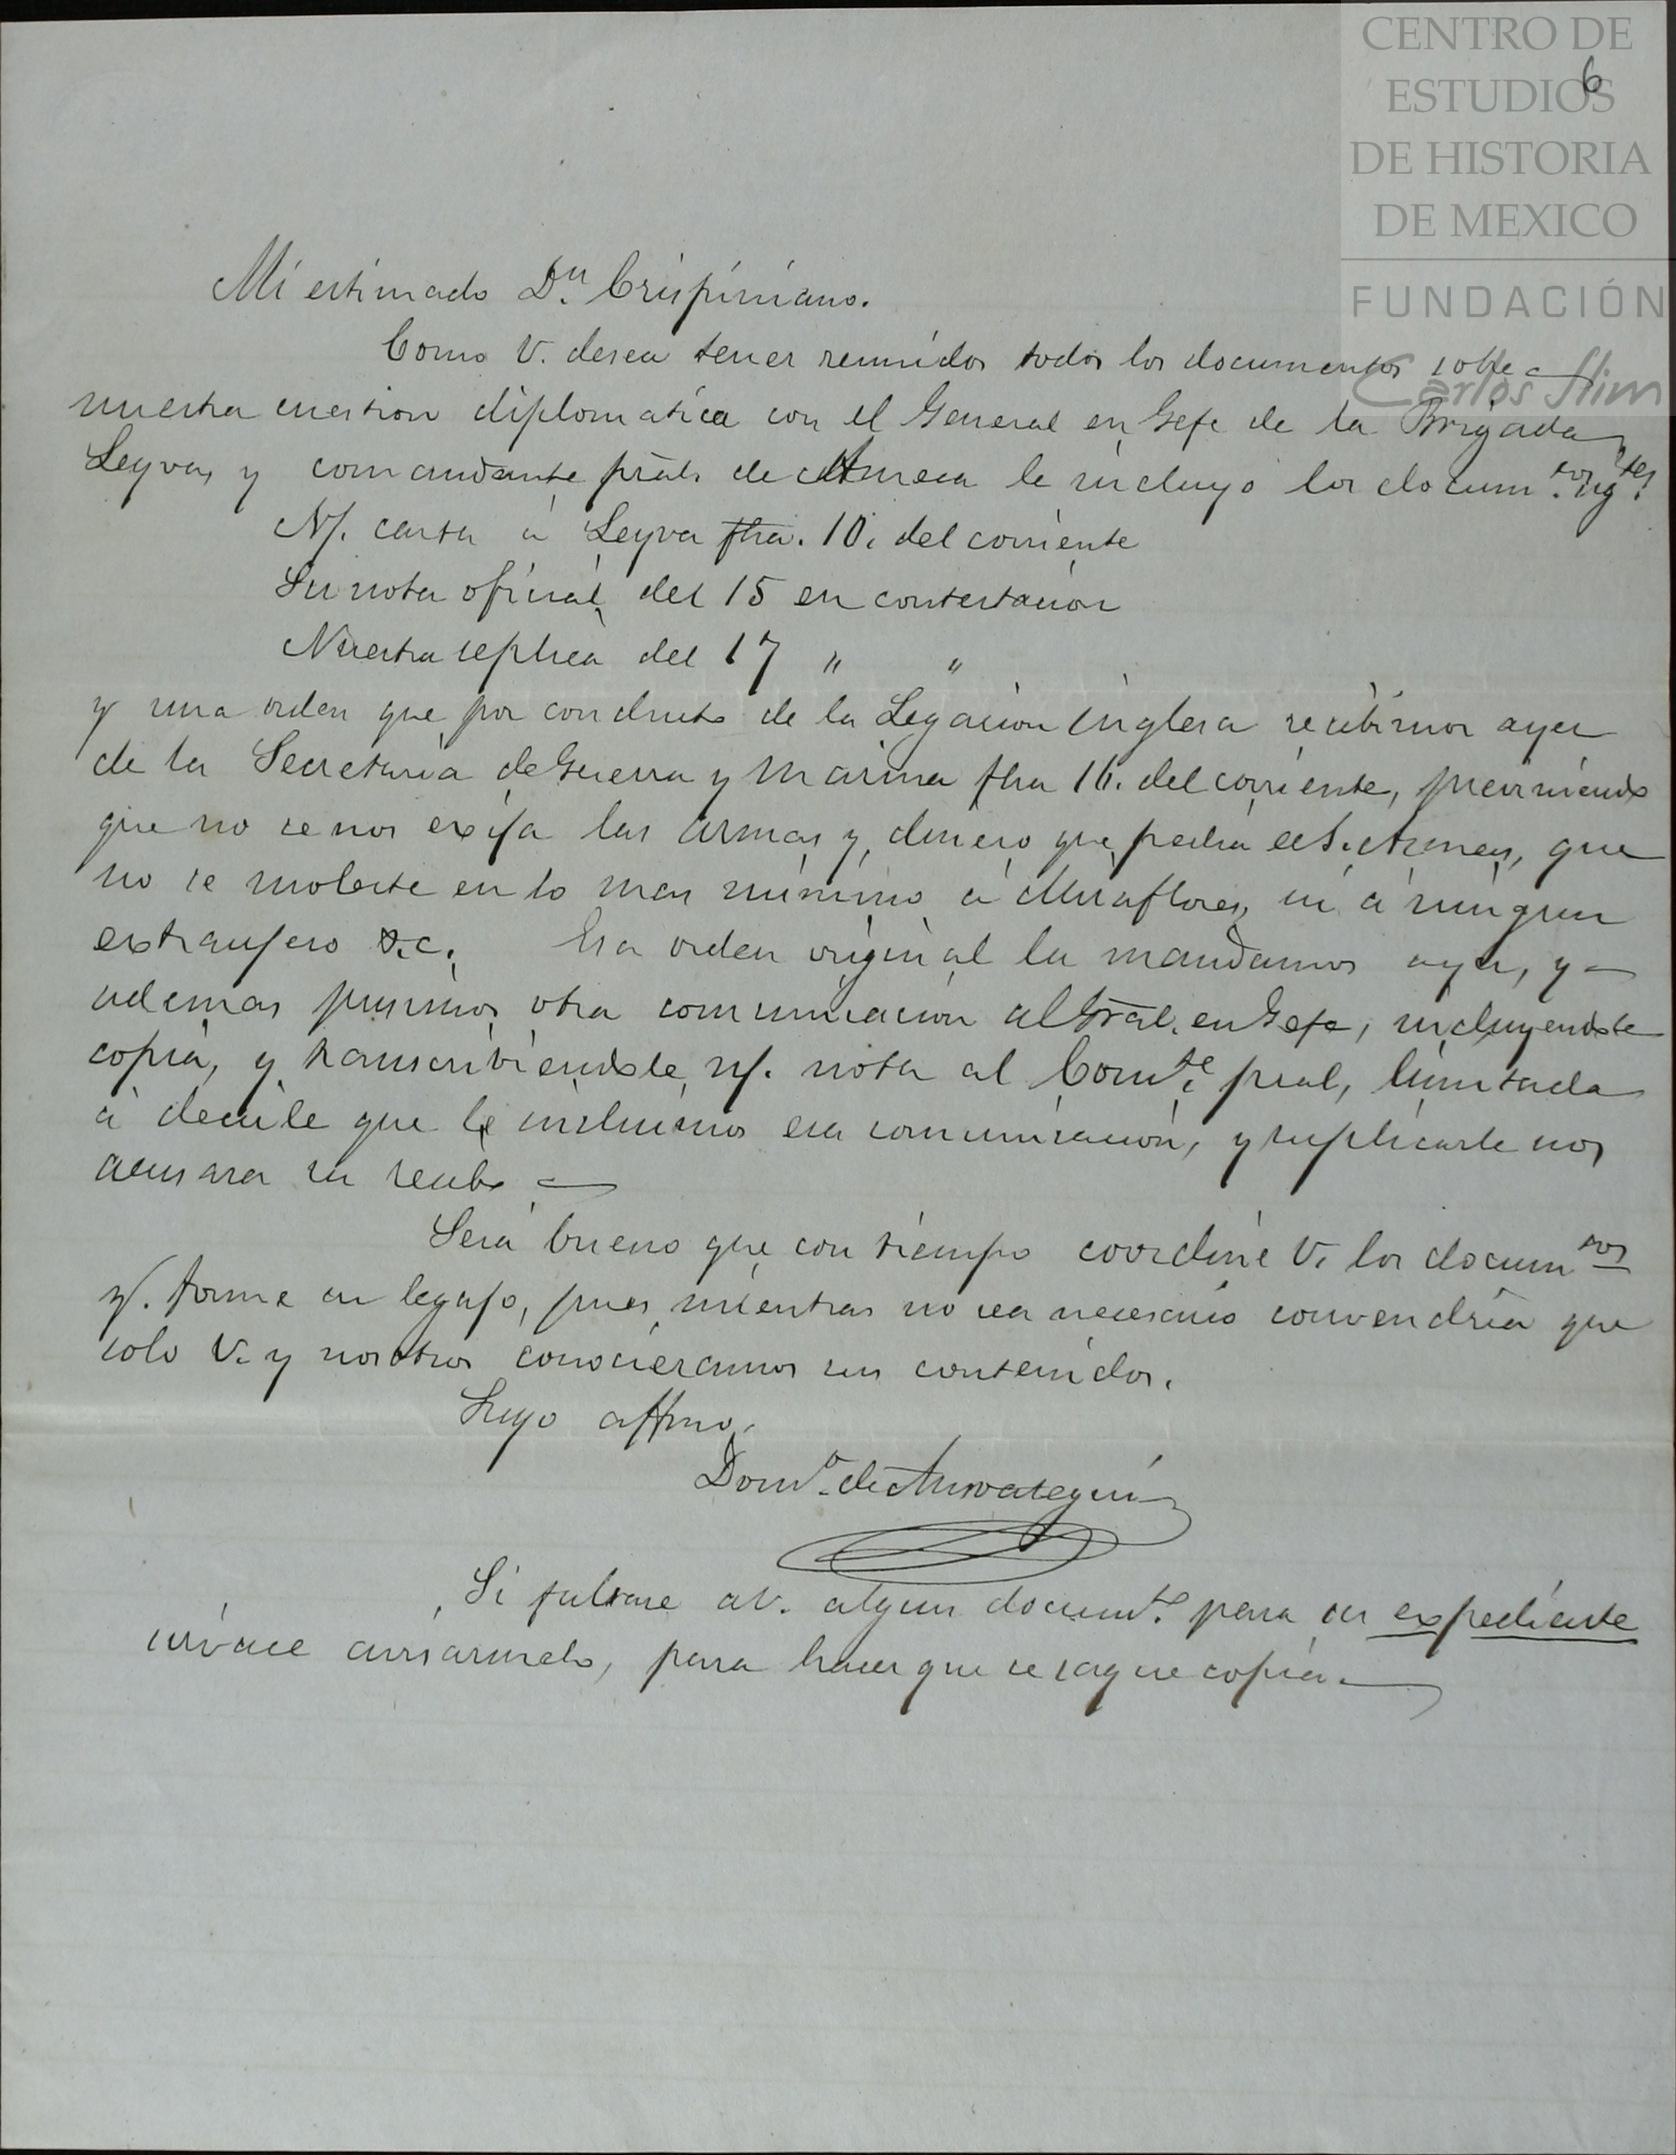 CENTRO DE
ESTUDIOS
DE HISTORIA
DE MEXICO
FUNDACIÓN
Carlos Slim
6
Mi estimado Dn. Crispiniano.
Como V. desea tener reunidos todos los documentos sobre
nuestra cuestion diplomatica con el General en Gefe de la Brigada
Leyva, y comandante pral. de Ameca le incluyo los docum.tos sig.tes
N/. carta á Leyva fha. 10. del corriente
Su nota oficial del 15 en contestacion
Nuestra replica del 17 " "
y una orden que por conducto de la Legacion inglesa recibimos ayer
de la Secretaria de Guerra y Marina fha 16. del corriente, previniendo
que no se nos exija las armas y dinero que pedia el S. que
no se moleste en lo mas minimo á Miraflores, ni á ningun
extranjero &.c. Esa orden original la mandamos ayer, y
ademas pusimos otra comunicacion al Gral. en Gefe, incluyendole
copia, y transcribiendole n/. nota al Com.te pral, limitada
á decirle que le incluimos esa comunicacion, y suplicarle nos
acusara su recibo
Será bueno que con tiempo coordine V. los docum.tos
y. forme un legajo, pues mientras no sea necesario convendria que
solo V. y nosotros conocieramos sus contenidos.
Suyo affmo.
Dom.o de Amoategui
Si faltare a V. algun docum.to para su expediente
sirvase avisarmelo, para hacer que se saque copia.